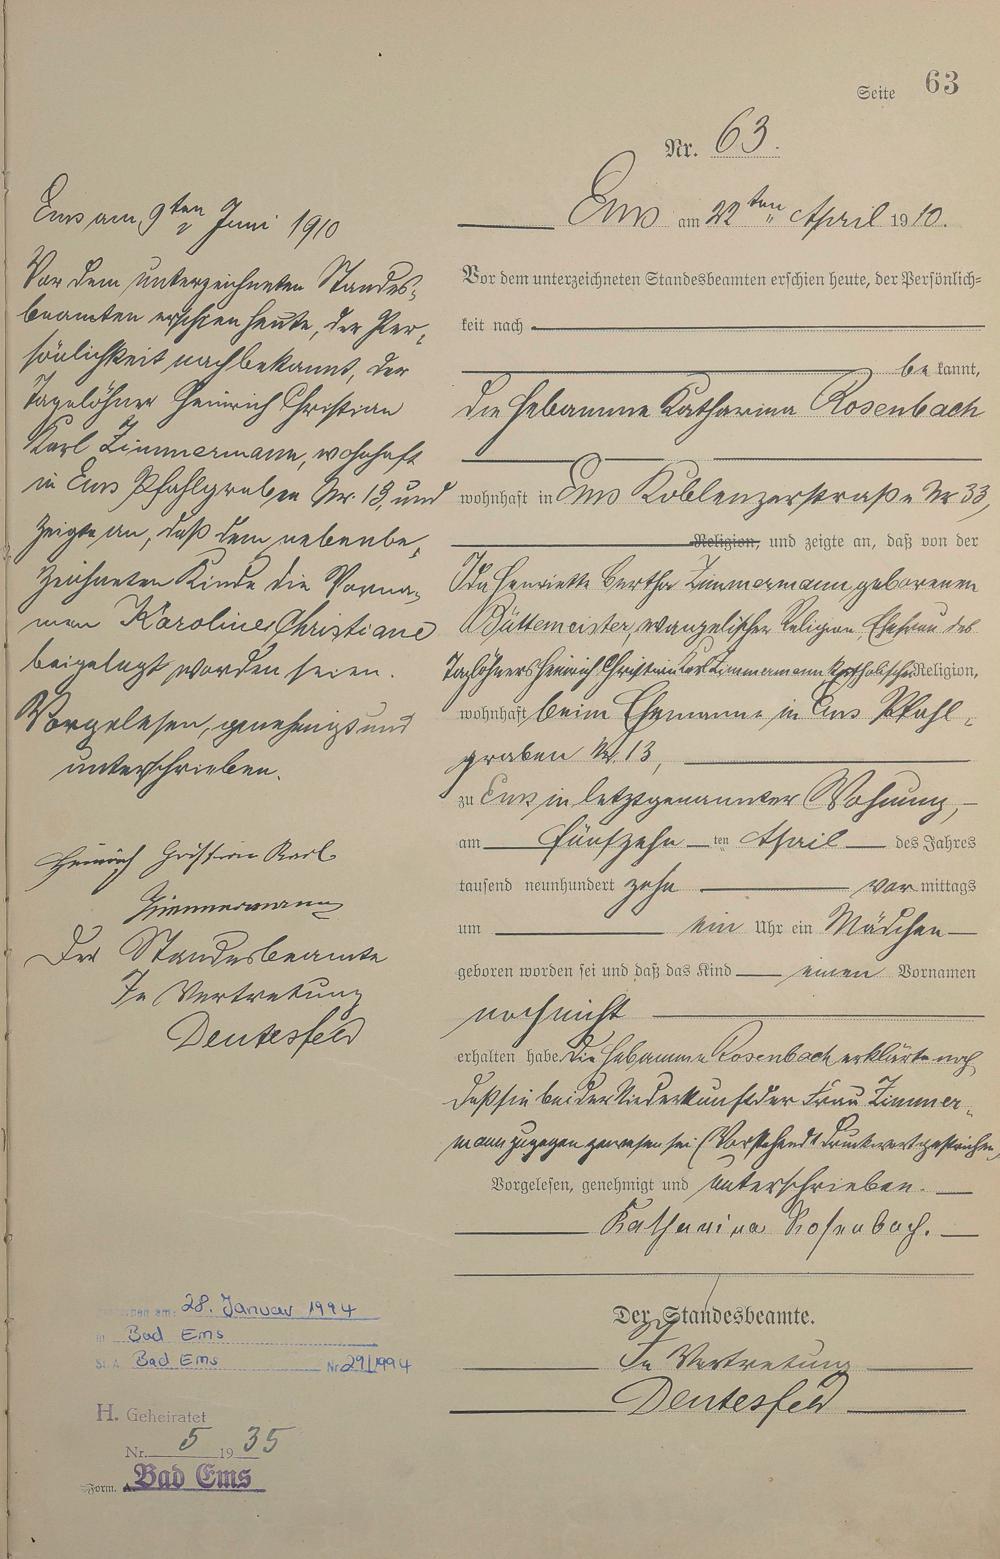 Seite 63
Nr. 63.
Ems am 22ten April 1910.
Vor dem unterzeichneten Standesbeamten erschien heute, der Persönlich-
keit nach
be kannt,
die Hebamme Katharina Rosenbach
wohnhaft in Ems Koblenzerstraße Nr 33,
Religion, und zeigte an, daß von der
Ida Henriette Bertha Zimmermann geborenen
Büttemeister, evangelischer Religion Ehefrau des
Taglöhners Heinrich Christian Karl Zimmermann katholischer Religion,
wohnhaft beim Ehemanne in Ems Pfahl-
graben Nr. 13,
zu Ems in letztgenannter Wohnung,
am fünfzehnten April des Jahres
tausend neunhundert zehn vormittags
um ein Uhr ein Mädchen
geboren worden sei und daß das Kind einen Vornamen
noch nicht
erhalten habe. Die Hebamme Rosenbach erklärte noch
daß sie bei der Niederkunft der Frau Zimmer-
mann zugegen gewesen sei. (Vorstehend 1 Druckwort gestrichen)
Vorgelesen, genehmigt und unterschrieben.
Katharina Rosenbach.
Der Standesbeamte.
In Vertretung
Deutesfeld
Ems am 9ten Juni 1910
Vor dem unterzeichneten Standes-
beamten erschien heute, der Per-
sönlichkeit nach bekannt, der
Tagelöhner Heinrich Christian
Karl Zimmermann, wohnhaft
in Ems Pfahlgraben Nr. 13, und
zeigte an, daß dem nebenbe-
zeichneten Kinde die Vorna-
men Karoline Christiane
beigelegt worden seien.
Vorgelesen, genehmigt und
unterschrieben.
Heinrich Christian Karl
Zimmermann
Der Standesbeamte
In Vertretung
Deutesfeld
am: 28. Januar 1994
in Bad Ems
St. A. Bad Ems Nr 29/1994
H. Geheiratet
Nr. 5 1935
Form. A. Bad Ems